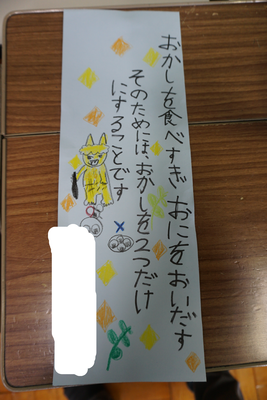 おかしを食べすぎおにをおいだす
そのためには、おかしを2つだけ
にすることです